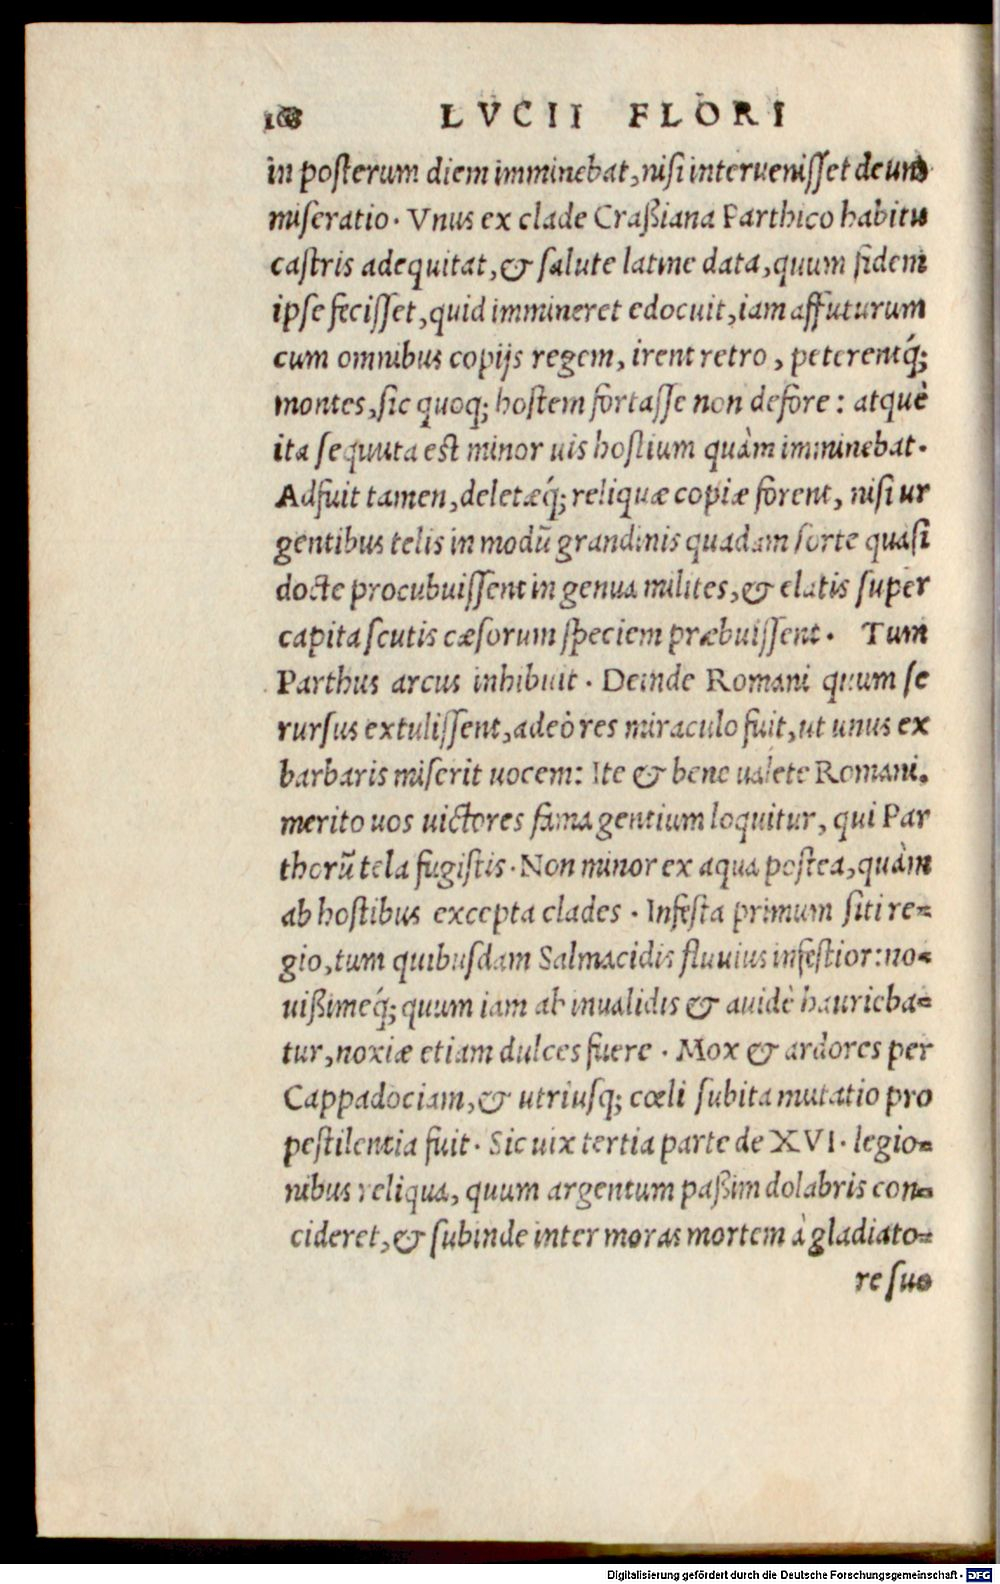 LVCII FLORI
in posterum diem imminebat, nisi interuenisset deum
miseratio. Vnus ex clade Craßiana Parthico habitu
castris adequitat, & salute latine data, quum fidem
ipse fecisset, quid immineret edocuit, iam affuturum
cum omnibus copijs regem, irent retro, peterentq́;
montes, sic quoq; hostem fortasse non defore: atque
ita sequuta est minor uis hostium quàm imminebat.
Adfuit tamen, deletæq́; reliquæ copiæ forent, nisi ur
gentibus telis in modũ grandinis quadam sorte quasi
docte procubuissent in genua milites, & elatis super
capita scutis cæsorum speciem præbuissent. Tum
Parthus arcus inhibuit. Deinde Romani quum se
rursus extulissent, adeò res miraculo fuit, ut unus ex
barbaris miserit uocem: Ite & bene ualete Romani,
merito uos uictores fama gentium loquitur, qui Par
thorũ tela fugistis. Non minor ex aqua postea, quàm
ab hostibus excepta clades. Infesta primum siti re=
gio, tum quibusdam Salmacidis fluuius infestior: no=
uißimeq́; quum iam ab inualidis & auidè haurieba=
tur, noxiæ etiam dulces fuere. Mox & ardores per
Cappadociam, & utriusq; cœli subita mutatio pro
pestilentia fuit. Sic uix tertia parte de XVI. legio=
nibus reliqua, quum argentum paßim dolabris con=
cideret, & subinde inter moras mortem à gladiato=
re suo
Digitalisierung gefördert durch die Deutsche Forschungsgemeinschaft - DFG